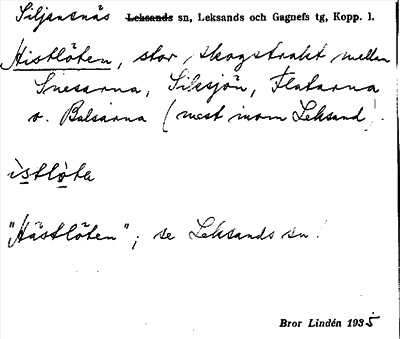 Siljansnäs Leksands sn, Leksands och Gagnefs tg, Kopp. l.
Histlöten, stor skogstrakt mellan
Snesarna, Silsjön, Flatarna
o. Balsarna (mest inom Leksand).
ìstlöta
"Hästlöten"; se Leksands sn.
Bror Lindén 1935